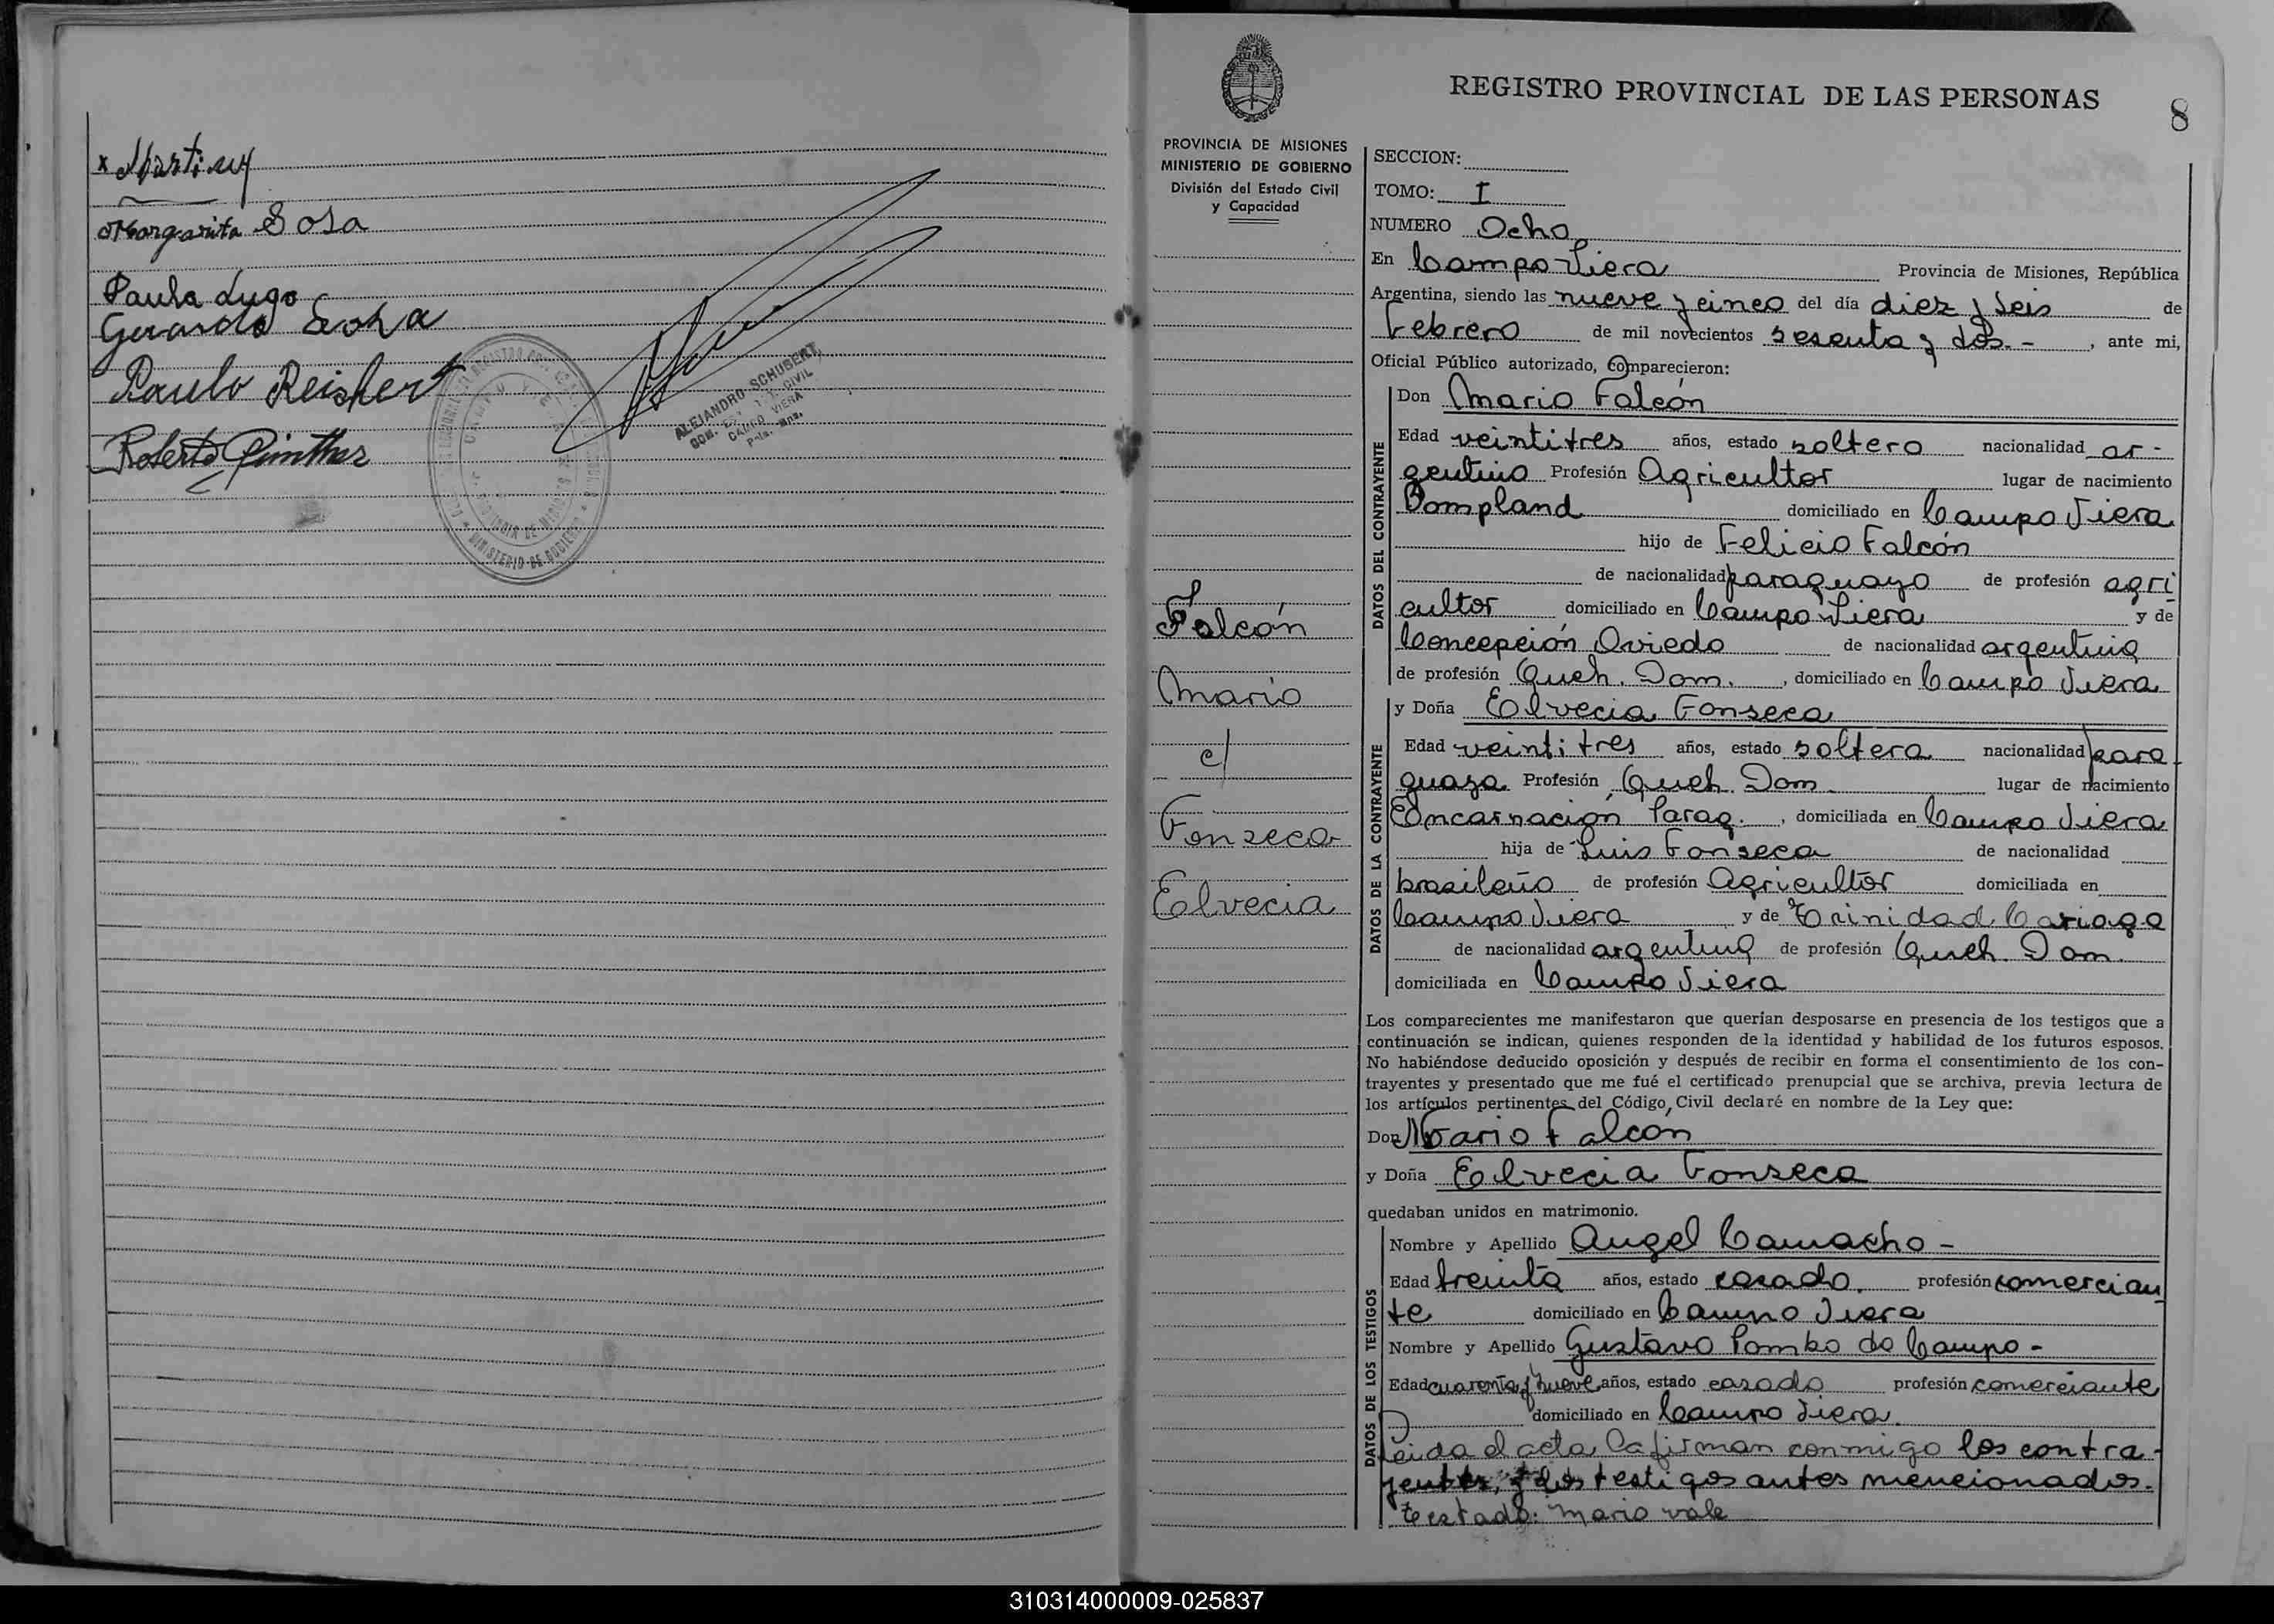 x Martinez
Margarita Sosa
Paula Lugo
Gerardo Sosa
Paulo Reichert
Roberto Günther
ALEJANDRO SCHUBERT
CIVIL
CAMPO VIERA
Pcia. Mnes.
MINISTERIO DE GOBIERNO
REGISTRO PROVINCIAL DE LAS PERSONAS
8
PROVINCIA DE MISIONES
MINISTERIO DE GOBIERNO
División del Estado Civil
y Capacidad
Falcón
Mario
c/
Fonseca
Elvecia
SECCION:
TOMO: I
NUMERO Ocho
En Campo Viera Provincia de Misiones, República
Argentina, siendo las nueve y cinco del día diez y seis de
Febrero de mil novecientos sesenta y dos.- , ante mi,
Oficial Público autorizado, comparecieron:
Don Mario Falcón
DATOS DEL CONTRAYENTE
Edad veintitres años, estado soltero nacionalidad ar-
gentino Profesión Agricultor lugar de nacimiento
Bompland domiciliado en Campo Viera
hijo de Felicio Falcón
de nacionalidad paraguayo de profesión agri
cultor , domiciliado en Campo Viera y de
Concepción Oviedo de nacionalidad argentina
de profesión Queh. Dom. , domiciliado en Campo Viera
y Doña Elvecia Fonseca
DATOS DE LA CONTRAYENTE
Edad veintitres años, estado soltera nacionalidad para-
guaya Profesión Queh. Dom. lugar de nacimiento
Encarnación Parag. , domiciliada en Campo Viera
hija de Luis Fonseca de nacionalidad
brasileño de profesión Agricultor domiciliada en
Campo Viera y de Trinidad Cariaga
de nacionalidad argentina de profesión Queh. Dom.
domiciliada en Campo Viera
Los comparecientes me manifestaron que querían desposarse en presencia de los testigos que a
continuación se indican, quienes responden de la identidad y habilidad de los futuros esposos.
No habiéndose deducido oposición y después de recibir en forma el consentimiento de los con-
trayentes y presentado que me fué el certificado prenupcial que se archiva, previa lectura de
los artículos pertinentes del Código Civil declaré en nombre de la Ley que:
Don Mario Falcon
y Doña Elvecia Fonseca
quedaban unidos en matrimonio.
DATOS DE LOS TESTIGOS
Nombre y Apellido Angel Camacho -
Edad treinta años, estado casado. profesión comercian
te domiciliado en Campo Viera
Nombre y Apellido Gustavo Pombo do Campo -
Edad cuarenta y nueve años, estado casado profesión comerciante
domiciliado en Campo Viera.
Leida el acta la firman conmigo los contra-
yentes, y los testigos antes mencionados.
testado: Mario vale
310314000009-025837